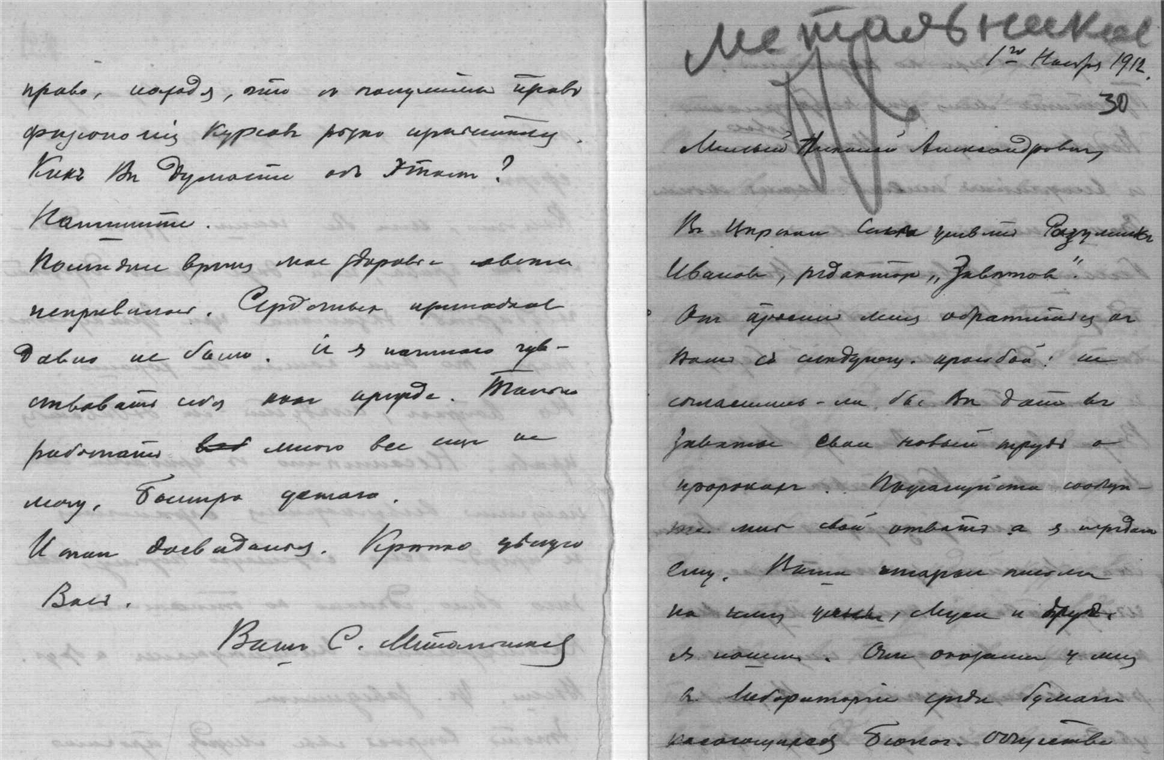 право, находя, что с получением прав
физиономия Курсов резко изменится.
Какъ Вы думаете объ этомъ?
Напишите.
Последнее время мое здоровье совсем
поправилось. Сердечных припадков
давно не было. И я начинаю чув-
ствовать себя как прежде. Только
работать много все еще не
могу, быстро устаю.
Итак досвиданья. Крепко целую
Васъ.
Вашъ С. Метальников
Метальников
1го Ноября 1912.
30
Милый Николай Александрович
В Царском Селе живет Разумник
Иванов, редактор „Заветов".
Он просит меня обратиться к
Вамъ съ следующ. просьбой: не
согласились-ли бы Вы дать въ
Заветы свой новый трудъ о
. Пожалуйста сообщи-
те мне свой ответъ а я передам
ему. Ваши старые письма
на имя , Муси и друг.
я нашел. Они оказались у меня
в лаборатории среди бумаг
касающихся Биолог. общества